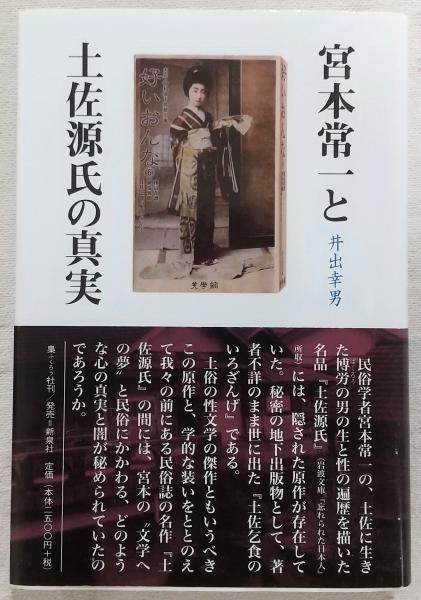 宮本常一と
土佐源氏の真実
井出幸男
好いおんな
⑥
好いおんな
美学館
民俗学者宮本常一の、土佐に生き
た博労の男の生と性の遍歴を描いた
ばくろう
名品『土佐源氏』（岩波文庫『忘れられた日本人』
所収）には、隠された原作が存在して
いた。秘密の地下出版物として、著
者不詳のまま世に出た『土佐乞食の
いろざんげ』である。
土俗の性文学の傑作ともいうべき
この原作と、学的な装いをととのえ
て我々の前にある民俗誌の名作『土
佐源氏』の間には、宮本の〝文学へ
の夢〟と民俗にかかわる、どのよう
な心の真実と闇が秘められていたの
であろうか。
梟ふくろう社刊／発売＝新泉社　定価（本体二五〇〇円＋税）